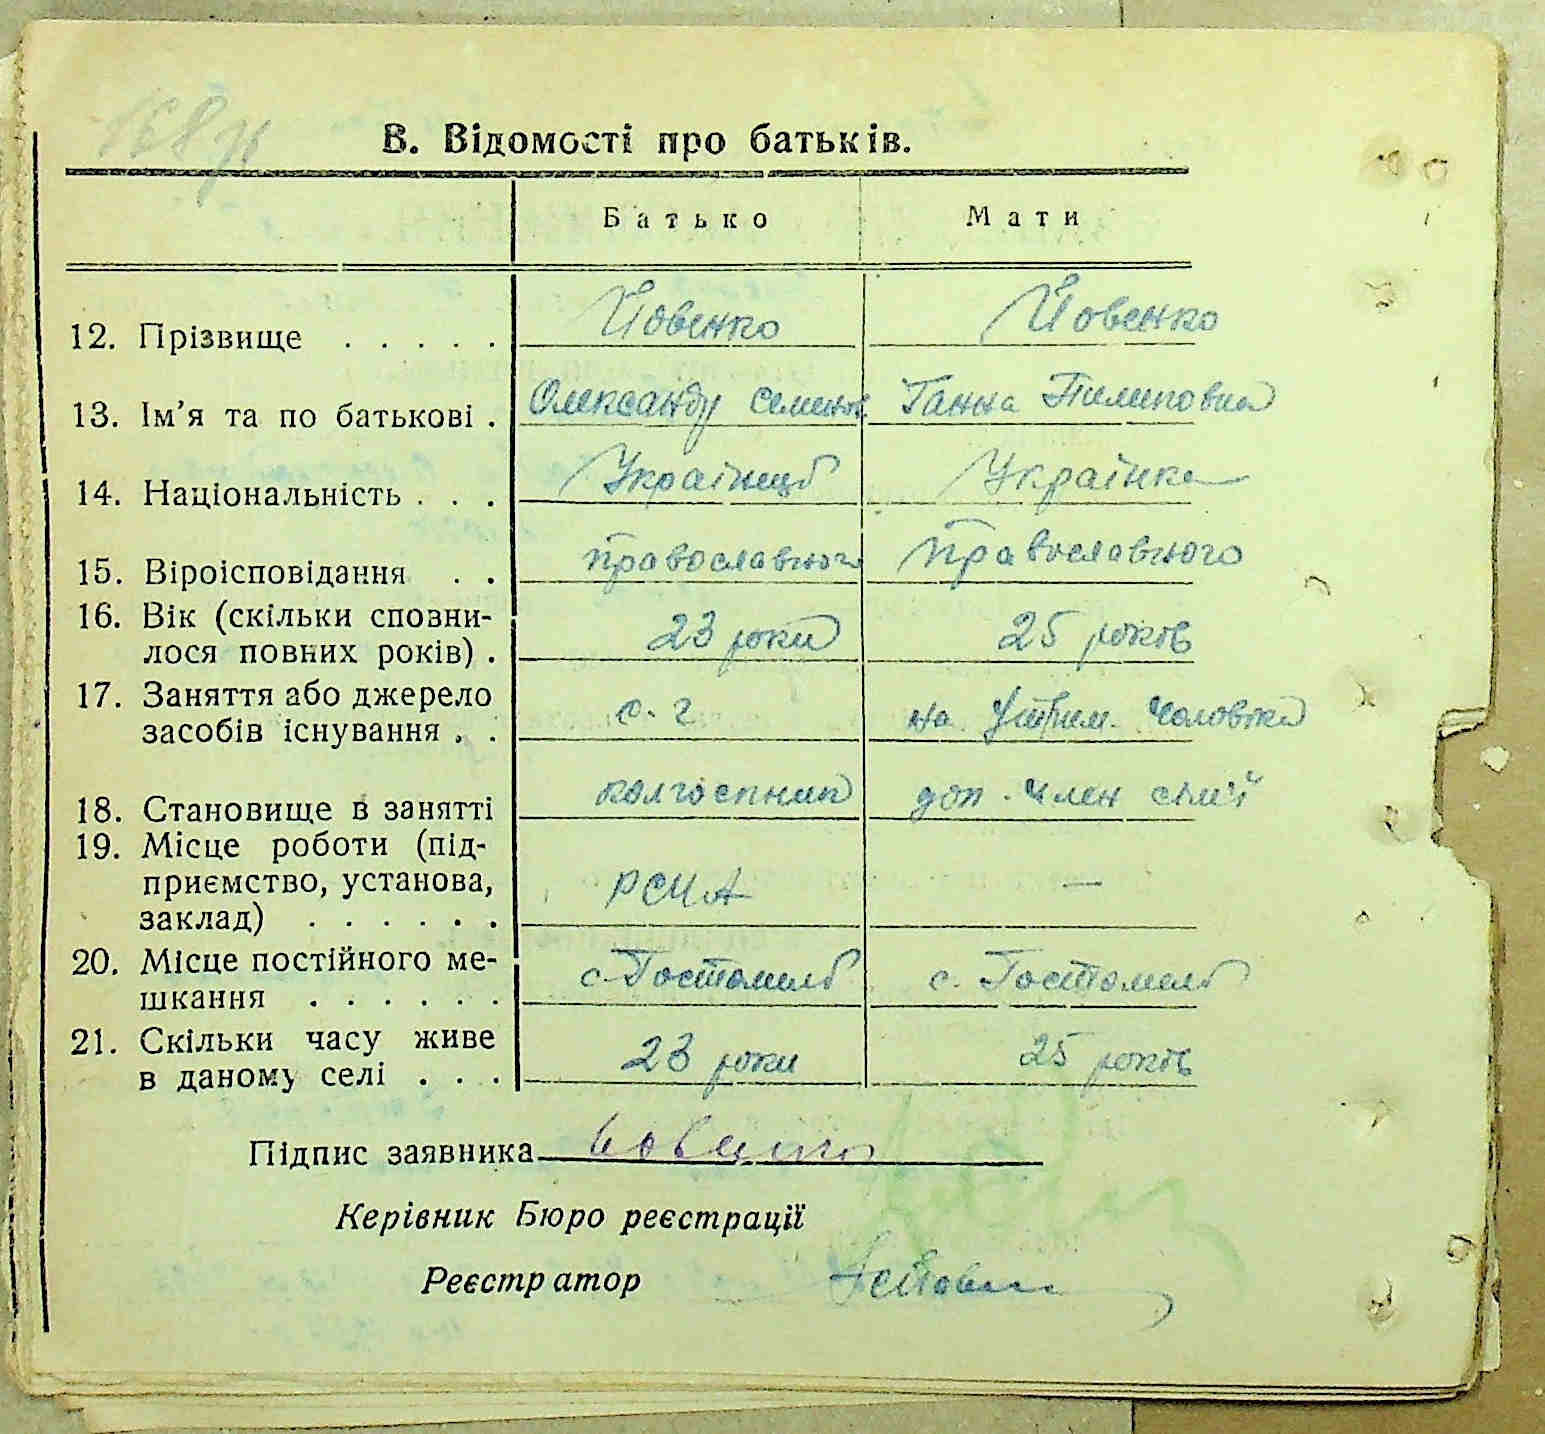 В. Відомості про батьків.
Батько Мати
12. Прізвище . . . . . Йовенко Йовенко
13. Ім’я та по батькові . Олександр Семенов. Ганна Пилиповна
14. Національність . . . Українець Українка
15. Віроісповідання . . православного православного
16. Вік (скільки сповни-
лося повних років) . 23 роки 25 років
17. Заняття або джерело
засобів існування . . с. г на утрим. чоловіка
18. Становище в занятті колгоспник доп. член сім'ї
19. Місце роботи (під-
приємство, установа,
заклад) . . . . . . РСЧА —
20. Місце постійного ме-
шкання . . . . . . с. Гостомель с. Гостомель
21. Скільки часу живе
в даному селі . . . 23 роки 25 років
Підпис заявника
Керівник Бюро реєстрації
Реєстратор